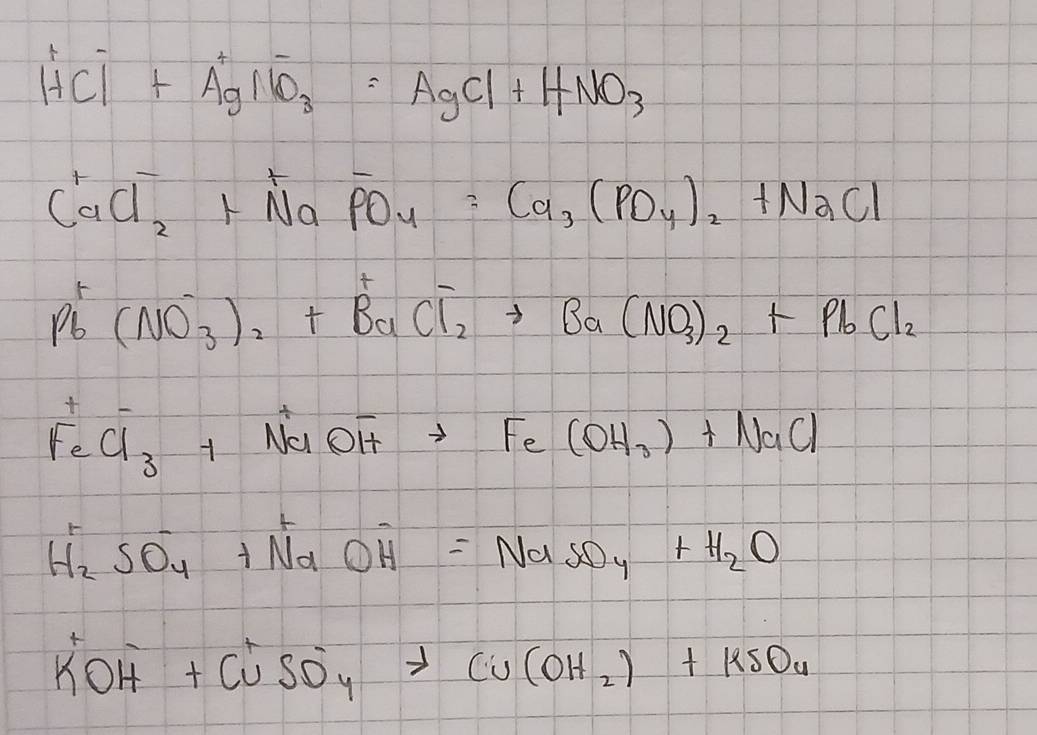 H⁺Cl⁻ + Ag⁺NO₃⁻ = AgCl + HNO₃
Ca⁺Cl₂⁻ + Na⁺PO₄⁻ = Ca₃(PO₄)₂ + NaCl
Pb⁺(NO₃⁻)₂ + Ba⁺Cl₂⁻ → Ba(NO₃)₂ + PbCl₂
Fe⁺Cl₃⁻ + Na⁺OH⁻ → Fe(OH₃) + NaCl
H₂⁺SO₄⁻ + Na⁺OH⁻ = NaSO₄ + H₂O
K⁺OH⁻ + Cu⁺SO₄⁻ → Cu(OH₂) + KSO₄